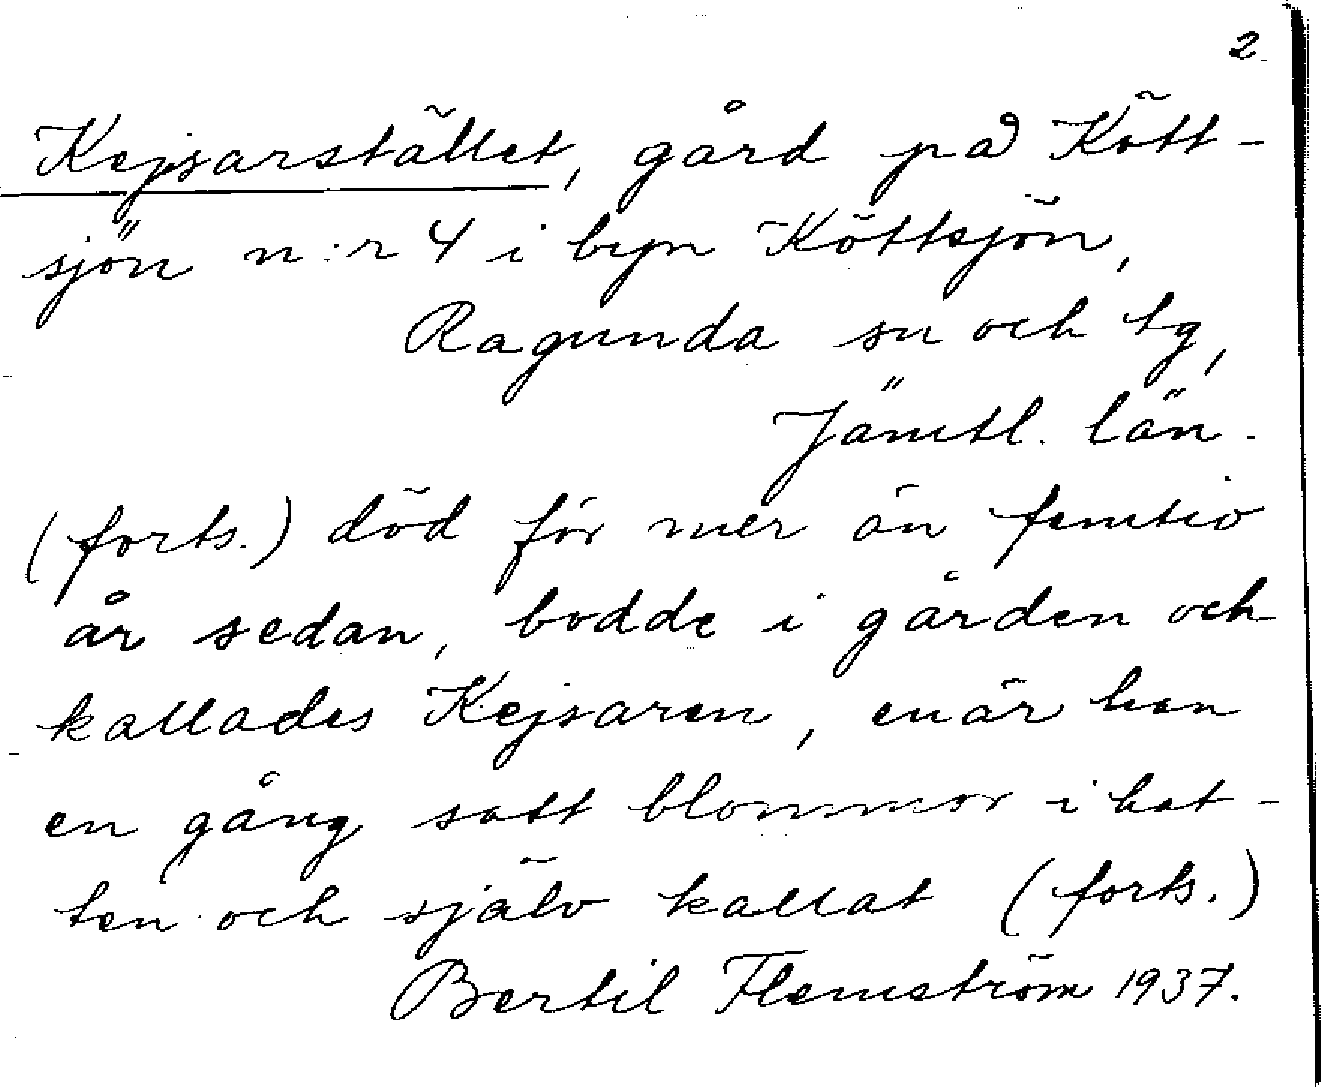 2
Kejsarstället, gård på Kött-
sjön n:r 4 i byn Köttsjön,
Ragunda sn och tg,
Jämtl. län.
(forts.) död för mer än femtio
år sedan, bodde i gården och
kallades Kejsaren, enär han
en gång satt blommor i hat-
ten och själv kallat (forts.)
Bertil Flemström 1937.